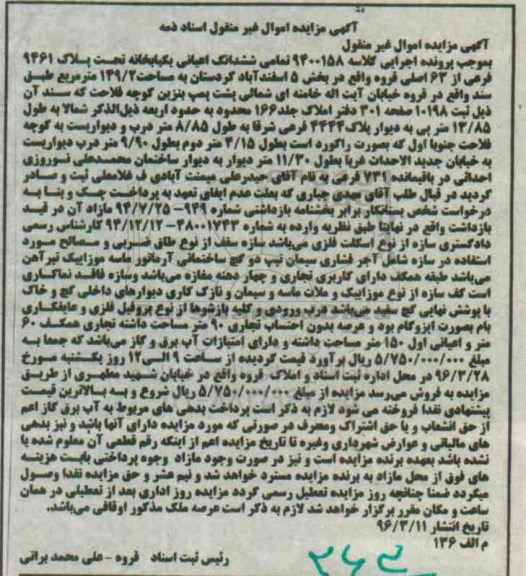 آگهی مزایده اموال غیر منقول اسناد ذمه
آگهی مزایده اموال غیر منقول
بموجب پرونده اجرایی کلاسه ۹۴۰۰۱۵۸ تمامی ششدانگ اعیانی یکبابخانه تحست پلاک ۹۴۶۱
فرعی از ۶۳ اصلی قروه واقع در بخش ۵ اسفندآباد کردستان به مساحت ۱۴۹/۲ مترمربع طبق
سند واقع در قروه خیابان آیت اله خامنه ای شمالی پشت پمپ بنزین کوچه فلاحت که سند آن
ذیل ثبت ۱۰۱۹۸ صفحه ۳۰۱ دفتر املاک جلد ۱۶۶ محدود به حدود اربعه ذیل الذکر شمالا به طول
۱۳/۸۵ متر پی به دیوار پلاک ۴۴۴۴ فرعی شرقا به طول ۸/۸۵ متر درب و دیواریست به کوچه
فلاحت جنوبا اول که بصورت راکورد است بطول ۴/۱۵ متر دوم بطول ۹/۹۰ متر درب دیواریست
به خیابان جدید الاحداث غربا بطول ۱۱/۳۰ متر دیوار به دیوار ساختمان محمدعلی نوروزی
احداثی در باقیمانده ۷۳۱ فرعی به نام آقای حیدرعلی میمنت آبادی ف غلامعلی ثبت و صادر
گردید در قبال طلب آقای مهدی جباری که بعلت عدم ایفای تعهد به پرداخت چک و بنا به
درخواست شخص بستانکار برابر بخشنامه بازداشتی شماره ۹۴۹- ۹۴/۷/۲۵ مازاد آن در قید
بازداشت واقع در نهایتا طبق نظریه وارده به شماره ۴۸۰۰۱۷۴۳- ۹۴/۱۲/۱۲ کارشناس رسمی
دادگستری سازه از نوع اسکلت فلزی می‌باشد سازه سقف از نوع طاق ضربی و مصالح مورد
استفاده در سازه شامل آجر فشاری سیمان تیپ دو گچ ساختمانی آرماتور ماسه موزاییک تیرآهن
می‌باشد طبقه همکف دارای کاربری تجاری و چهار دهنه مغازه می‌باشد وسازه فاقد نماکاری
است کف سازه از نوع موزاییک و ملات ماسه و سیمان و نازک کاری دیوارهای داخلی گچ و خاک
با پوشش نهایی گچ سفید می‌باشد درب ورودی و کلیه بازشوها از نوع پروفیل فلزی و عایقکاری
بام بصورت ایزوگام بود و عرصه بدون احتساب تجاری ۹۰ متر مساحت داشته تجاری همکف ۶۰
متر و اعیانی اول ۱۵۰ متر مساحت داشته و دارای امتیازات آب برق و گاز می‌باشد که جمعا به
مبلغ ۵/۷۵۰/۰۰۰/۰۰۰ ریال برآورد قیمت گردیده از ساعت ۹ الی ۱۲ روز یکشنبه مورخ
۹۶/۳/۲۸ در محل اداره ثبت اسناد و املاک قروه واقع در خیابان شهید مطهری از طریق
مزایده به فروش می‌رسد مزایده از مبلغ ۵/۷۵۰/۰۰۰/۰۰۰ ریال شروع و به بالاترین قیمت
پیشنهادی نقدا فروخته می شود لازم به ذکر است پرداخت بدهی های مربوط به آب برق گاز اعم
از حق انشعاب و یا حق اشتراک ومصرف در صورتی که مورد مزایده دارای آنها باشد و نیز بدهی
های مالیاتی و عوارض شهرداری وغیره تا تاریخ مزایده اعم از اینکه رقم قطعی آن معلوم شده یا
نشده باشد بعهده برنده مزایده است و نیز در صورت وجود مازاد وجوه پرداختی بابت هزینه
های فوق از محل مازاد به برنده مزایده مسترد خواهد شد و نیم عشر و حق مزایده نقدا وصول
میگردد ضمنا چنانچه روز مزایده تعطیل رسمی گردد مزایده روز اداری بعد از تعطیلی در همان
ساعت و مکان مقرر برگزار خواهد شد لازم به ذکر است عرصه ملک مذکور اوقافی می‌باشد.
تاریخ انتشار ۹۶/۳/۱۱
م الف ۱۳۶
رئیس ثبت اسناد قروه - علی محمد براتی